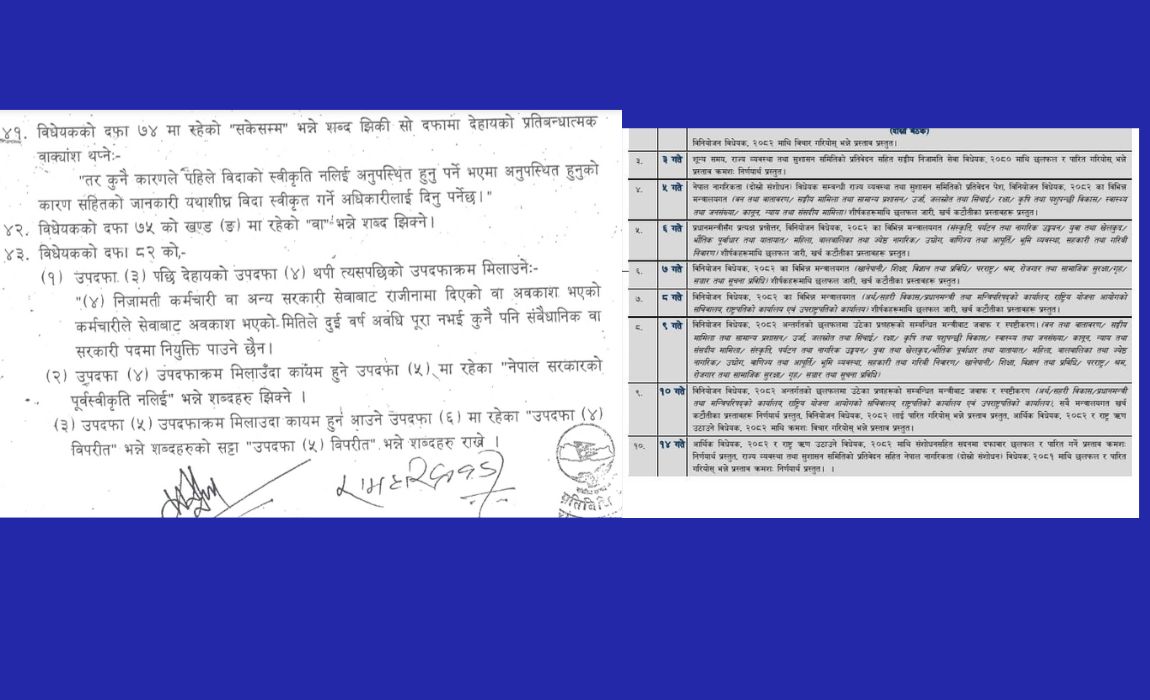 ४१. विधेयकको दफा ७४ मा रहेको "सकेसम्म" भन्ने शब्द झिकी सो दफामा देहायको प्रतिबन्धात्मक
वाक्यांश थप्नेः-
"तर कुनै कारणले पहिले विदाको स्वीकृति नलिई अनुपस्थित हुनु पर्ने भएमा अनुपस्थित हुनुको
कारण सहितको जानकारी यथाशीघ्र विदा स्वीकृत गर्ने अधिकारीलाई दिनु पर्नेछ।"
४२. विधेयकको दफा ७५ को खण्ड (ङ) मा रहेको "वा" भन्ने शब्द झिक्ने।
४३. विधेयकको दफा ८२ को,-
(१) उपदफा (३) पछि देहायको उपदफा (४) थपी त्यसपछिको उपदफाक्रम मिलाउनेः-
"(४) निजामती कर्मचारी वा अन्य सरकारी सेवाबाट राजीनामा दिएको वा अवकाश भएको
कर्मचारीले सेवाबाट अवकाश भएको मितिले दुई वर्ष अवधि पूरा नभई कुनै पनि संवैधानिक वा
सरकारी पदमा नियुक्ति पाउने छैन।
(२) उपदफा (४) उपदफाक्रम मिलाउँदा कायम हुने उपदफा (५) मा रहेका "नेपाल सरकारको
पूर्वस्वीकृति नलिई" भन्ने शब्दहरु झिक्ने ।
(३) उपदफा (५) उपदफाक्रम मिलाउदा कायम हुन आउने उपदफा (६) मा रहेका "उपदफा (४)
विपरीत" भन्ने शब्दहरुको सट्टा "उपदफा (५) विपरीत" भन्ने शब्दहरु राख्ने ।
प्रतिनिधि
विनियोजन विधेयक, २०८२ माथि विचार गरियोस् भन्ने प्रस्ताव प्रस्तुत।
३. ३ गते शून्य समय, राज्य व्यवस्था तथा सुशासन समितिको प्रतिवेदन सहित सङ्घीय निजामति सेवा विधेयक, २०८० माथि छलफल र पारित गरियोस् भन्ने
प्रस्ताव क्रमशः निर्णयार्थ प्रस्तुत।
४. ५ गते नेपाल नागरिकता (दोस्रो संशोधन) विधेयक सम्बन्धी राज्य व्यवस्था तथा सुशासन समितिको प्रतिवेदन पेश, विनियोजन विधेयक, २०८२ का विभिन्न
मन्त्रालयगत (वन तथा वातावरण/ सङ्घीय मामिला तथा सामान्य प्रशासन/ उर्जा, जलस्रोत तथा सिंचाई/ रक्षा/ कृषि तथा पशुपन्छी विकास/ स्वास्थ्य
तथा जनसंख्या/ कानून, न्याय तथा संसदीय मामिला) शीर्षकहरूमाथि छलफल जारी, खर्च कटौतीका प्रस्तावहरू प्रस्तुत।
५. ६ गते प्रधानमन्त्रीसँग प्रत्यक्ष प्रश्नोत्तर, विनियोजन विधेयक, २०८२ का विभिन्न मन्त्रालयगत (संस्कृति, पर्यटन तथा नागरिक उड्डयन/ युवा तथा खेलकुद/
भौतिक पूर्वाधार तथा यातायात/ महिला, बालबालिका तथा ज्येष्ठ नागरिक/ उद्योग, वाणिज्य तथा आपूर्ति/ भूमि व्यवस्था, सहकारी तथा गरिबी
निवारण) शीर्षकहरूमाथि छलफल जारी, खर्च कटौतीका प्रस्तावहरू प्रस्तुत।
६. ७ गते विनियोजन विधेयक, २०८२ का विभिन्न मन्त्रालयगत (खानेपानी/ शिक्षा, विज्ञान तथा प्रविधि/ परराष्ट्र/ श्रम, रोजगार तथा सामाजिक सुरक्षा/गृह/
सञ्चार तथा सूचना प्रविधि) शीर्षकहरूमाथि छलफल जारी, खर्च कटौतीका प्रस्तावहरू प्रस्तुत।
७. ८ गते विनियोजन विधेयक, २०८२ का विभिन्न मन्त्रालयगत (अर्थ/सहरी विकास/प्रधानमन्त्री तथा मन्त्रिपरिषद्को कार्यालय, राष्ट्रिय योजना आयोगको
सचिवालय, राष्ट्रपतिको कार्यालय एवं उपराष्ट्रपतिको कार्यालय) शीर्षकहरूमाथि छलफल जारी, खर्च कटौतीका प्रस्तावहरू प्रस्तुत।
८. ९ गते विनियोजन विधेयक, २०८२ अन्तर्गतको छलफलमा उठेका प्रश्नहरूको सम्बन्धित मन्त्रीबाट जवाफ र स्पष्टीकरण। (वन तथा वातावरण/ सङ्घीय
मामिला तथा सामान्य प्रशासन/ उर्जा, जलस्रोत तथा सिंचाई/ रक्षा/ कृषि तथा पशुपन्छी विकास/ स्वास्थ्य तथा जनसंख्या/ कानून, न्याय तथा
संसदीय मामिला/ संस्कृति, पर्यटन तथा नागरिक उड्डयन/ युवा तथा खेलकुद/भौतिक पूर्वाधार तथा यातायात/ महिला, बालबालिका तथा ज्येष्ठ
नागरिक/ उद्योग, वाणिज्य तथा आपूर्ति/ भूमि व्यवस्था, सहकारी तथा गरिबी निवारण/ खानेपानी/ शिक्षा, विज्ञान तथा प्रविधि/ परराष्ट्र/ श्रम,
रोजगार तथा सामाजिक सुरक्षा/ गृह/ सञ्चार तथा सूचना प्रविधि)
९. १० गते विनियोजन विधेयक, २०८२ अन्तर्गतको छलफलमा उठेका प्रश्नहरूको सम्बन्धित मन्त्रीबाट जवाफ र स्पष्टीकरण (अर्थ/सहरी विकास/प्रधानमन्त्री
तथा मन्त्रिपरिषद्को कार्यालय, राष्ट्रिय योजना आयोगको सचिवालय, राष्ट्रपतिको कार्यालय एवं उपराष्ट्रपतिको कार्यालय), सबै मन्त्रालयगत खर्च
कटौतीका प्रस्तावहरू निर्णयार्थ प्रस्तुत, विनियोजन विधेयक, २०८२ लाई पारित गरियोस् भन्ने प्रस्ताव प्रस्तुत, आर्थिक विधेयक, २०८२ र राष्ट्र ऋण
उठाउने विधेयक, २०८२ माथि क्रमशः विचार गरियोस् भन्ने प्रस्ताव प्रस्तुत।
१०. १४ गते आर्थिक विधेयक, २०८२ र राष्ट्र ऋण उठाउने विधेयक, २०८२ माथि संशोधनसहित सदनमा दफावार छलफल र पारित गर्ने प्रस्ताव क्रमशः
निर्णयार्थ प्रस्तुत, राज्य व्यवस्था तथा सुशासन समितिको प्रतिवेदन सहित नेपाल नागरिकता (दोस्रो संशोधन) विधेयक, २०८१ माथि छलफल र पारित
गरियोस् भन्ने प्रस्ताव क्रमशः निर्णयार्थ प्रस्तुत। ।